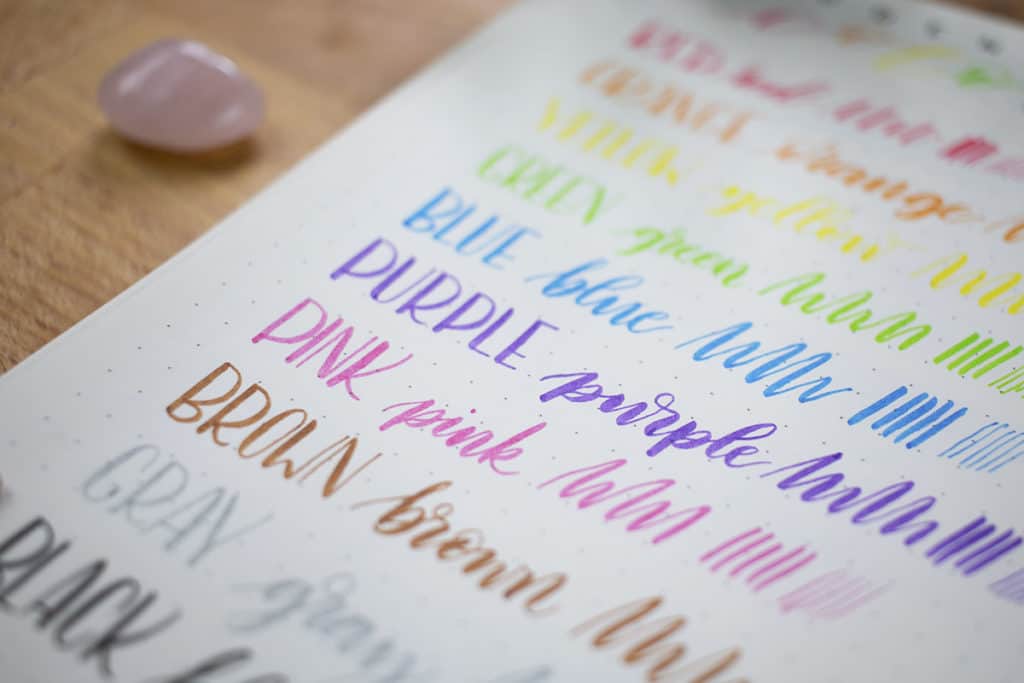 RED red
ORANGE orange
YELLOW yellow
GREEN green
BLUE blue
PURPLE purple
PINK pink
BROWN brown
GRAY gray
BLACK